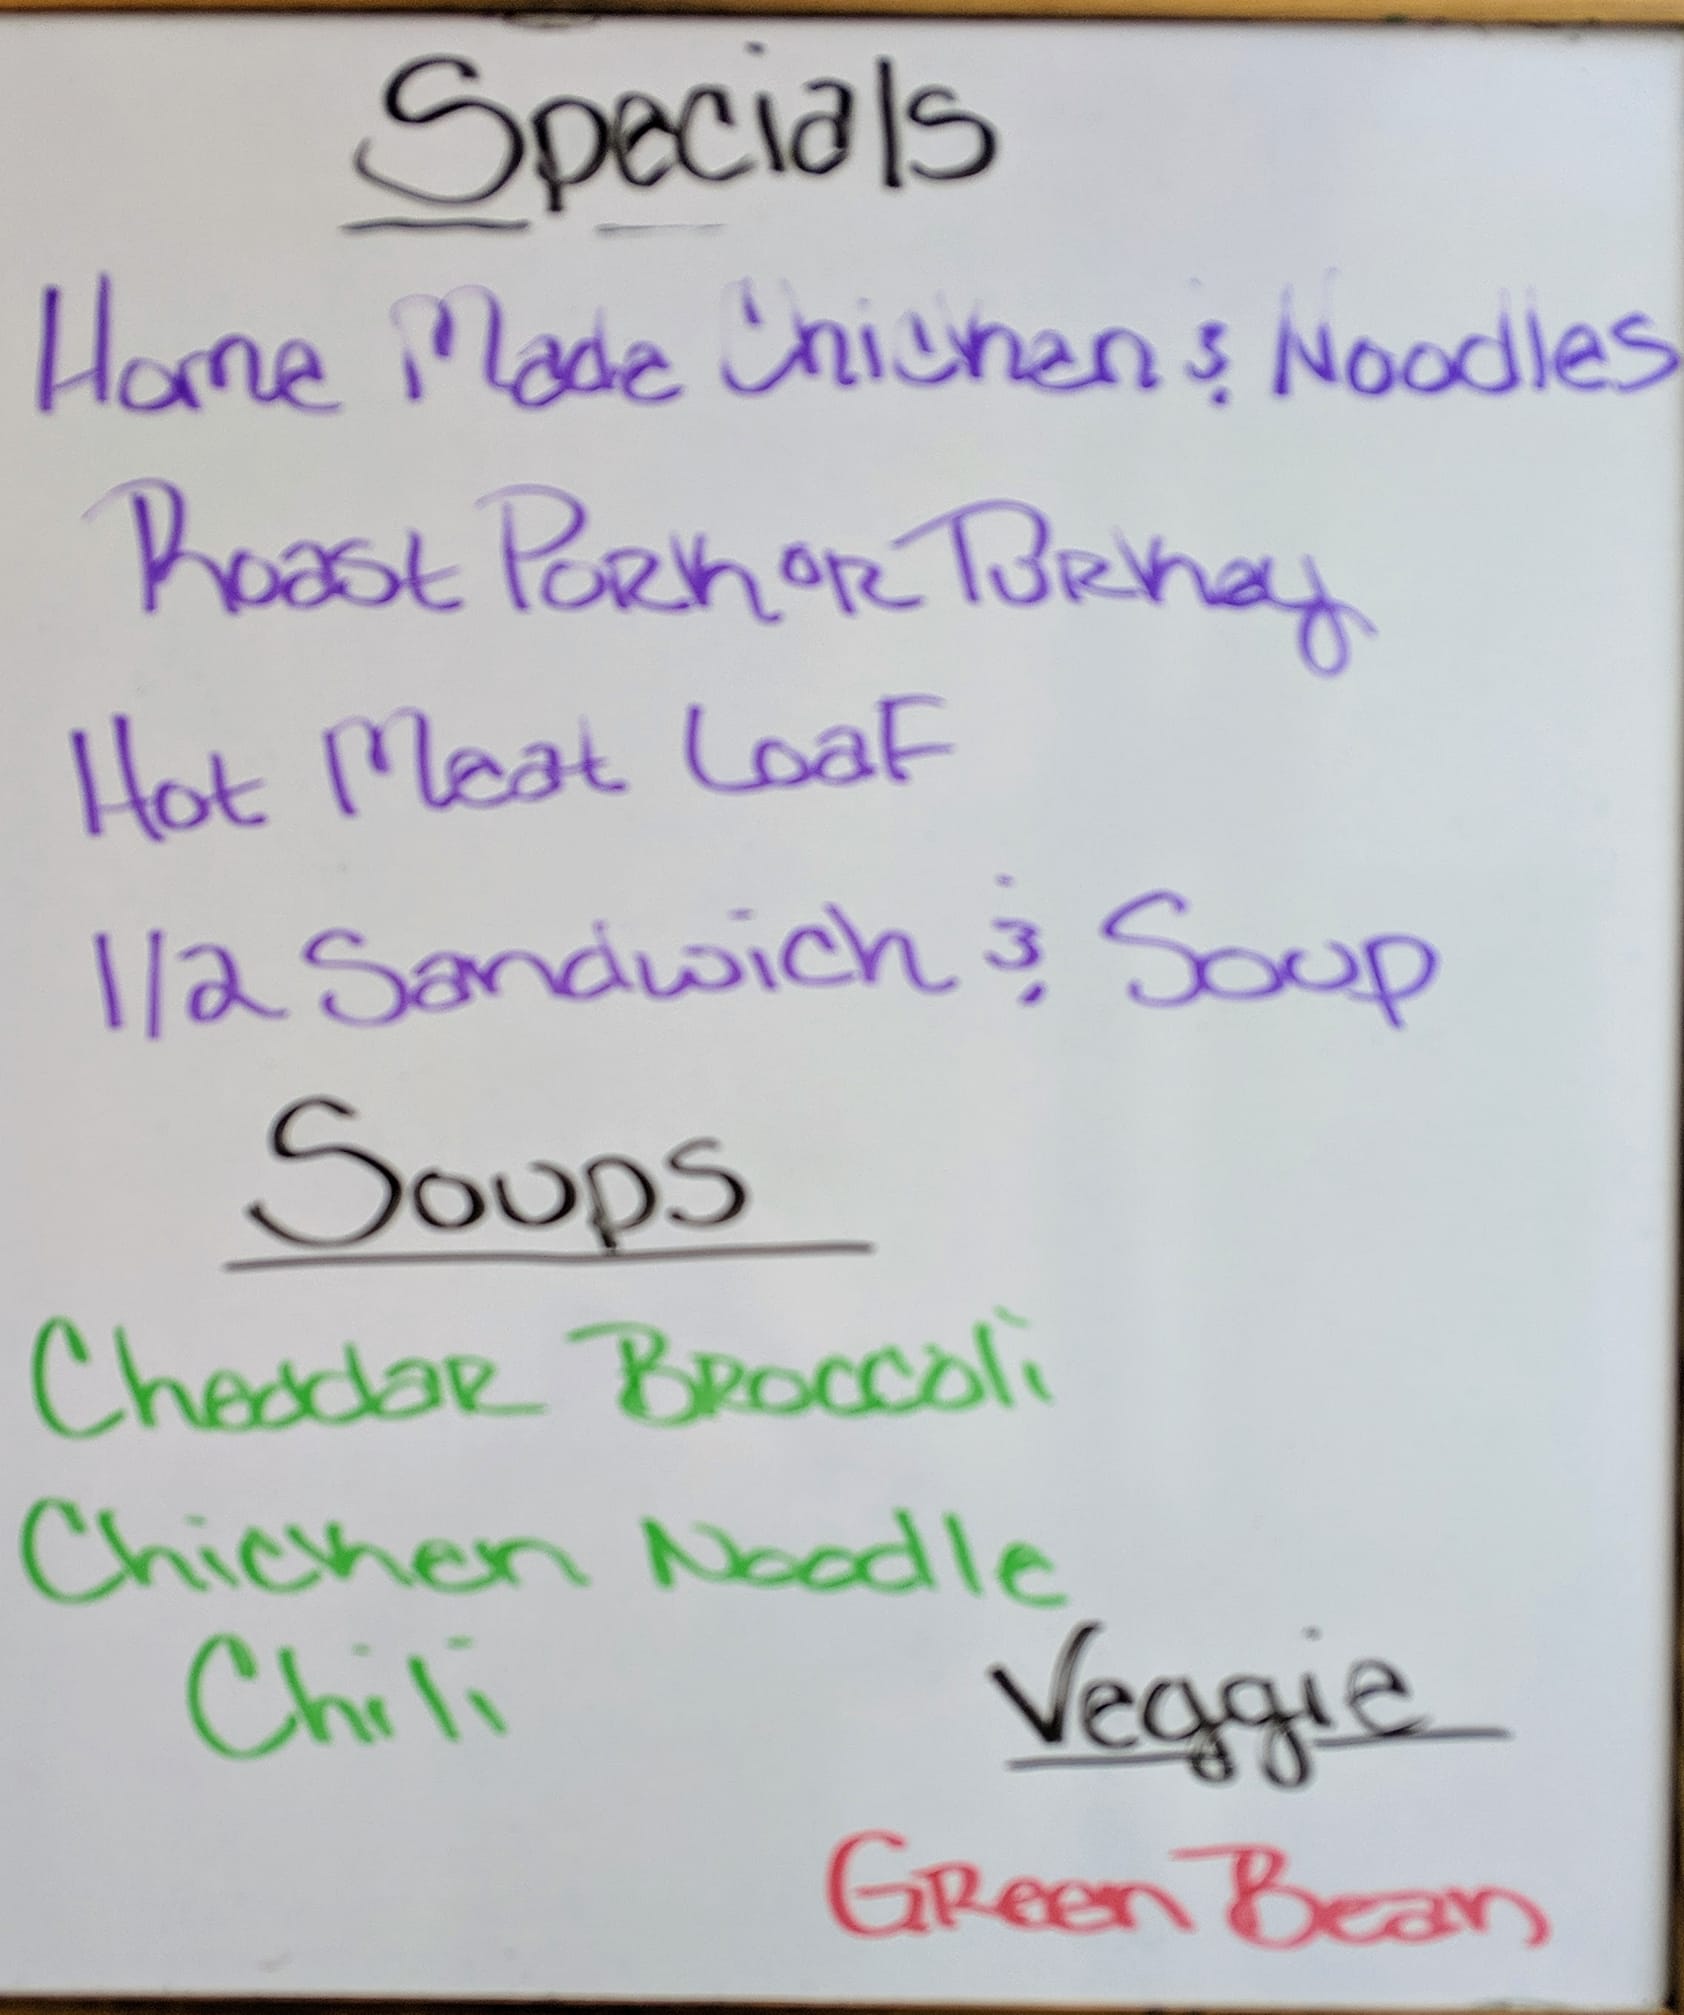 Specials
Home Made Chicken & Noodles
Roast Pork or Turkey
Hot Meat Loaf
1/2 Sandwich & Soup
Soups
Cheddar Broccoli
Chicken Noodle
Chili
Veggie
Green Bean